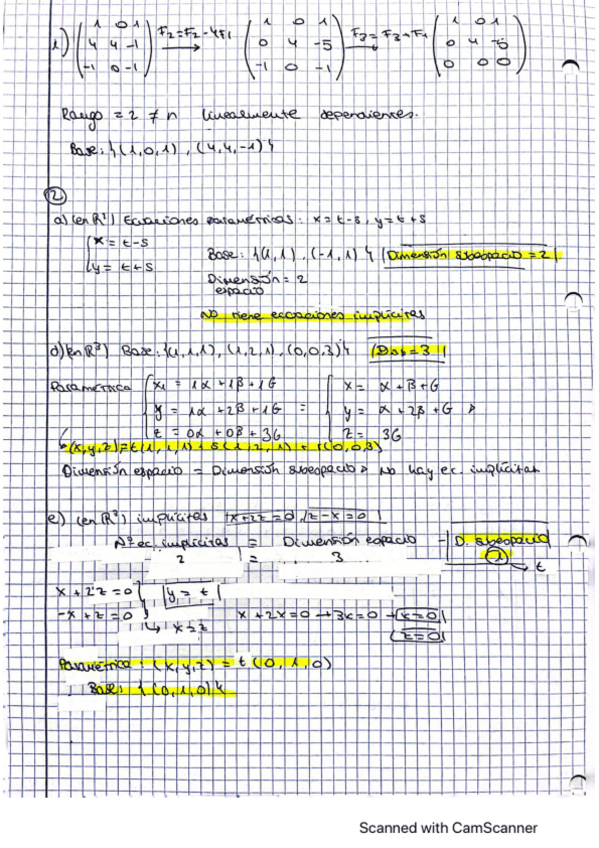 1) ( 1 0 1 ) F2=F2-4F1 ( 1 0 1 ) F3=F3+F1 ( 1 0 1 )
( 4 4 -1 ) → ( 0 4 -5 ) → ( 0 4 -5 )
( -1 0 -1 ) ( -1 0 -1 ) ( 0 0 0 )
Rango = 2 ≠ n linealmente dependientes.
Base: {(1,0,1), (4,4,-1)}
2
a) (en R²) Ecuaciones paramétricas: x=t-s, y=t+s
{ x = t-s
{ y = t+s Base: {(1,1), (-1,1)} Dimensión subespacio = 2
Dimensión = 2
espacio
No tiene ecuaciones implícitas
d) (en R³) Base: {(1,1,1), (1,2,1), (0,0,3)} Dim = 3
Paramétrica { x1 = 1α + 1β + 1G = { x = α + β + G
y = 1α + 2β + 1G y = α + 2β + G
z = 0α + 0β + 3G z = 3G
(x,y,z) = t(1,1,1) + s(1,2,1) + r(0,0,3)
Dimensión espacio = Dimensión subespacio No hay ec. implícitas
e) (en R³) implícitas x+2z=0, z-x=0
Nº ec. implícitas = Dimensión espacio - D. subespacio
2 = 3 1 → t
x + 2z = 0 y = t
-x + z = 0 x = z x + 2x = 0 → 3x = 0 → x = 0
z = 0
Paramétrica: (x,y,z) = t(0,1,0)
Base: {(0,1,0)}
Scanned with CamScanner